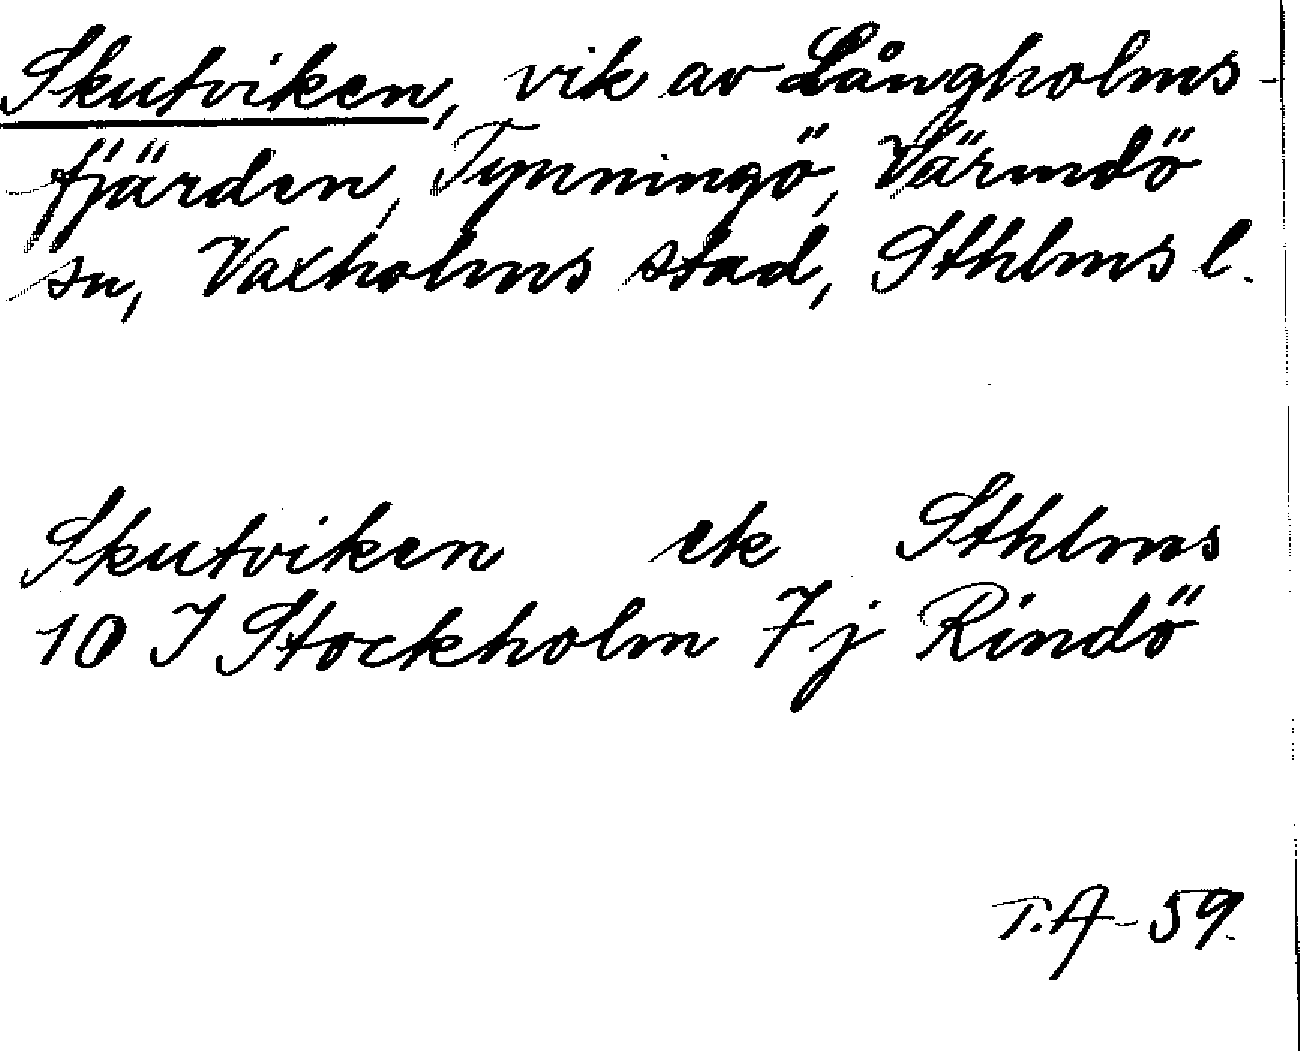 Skutviken, vik av Långholms-
fjärden, Tynningö, Värmdö
sn, Vaxholms stad, Sthlms l.
Skutviken ek Sthlms
10 I Stockholm 7j Rindö
T.A-59.